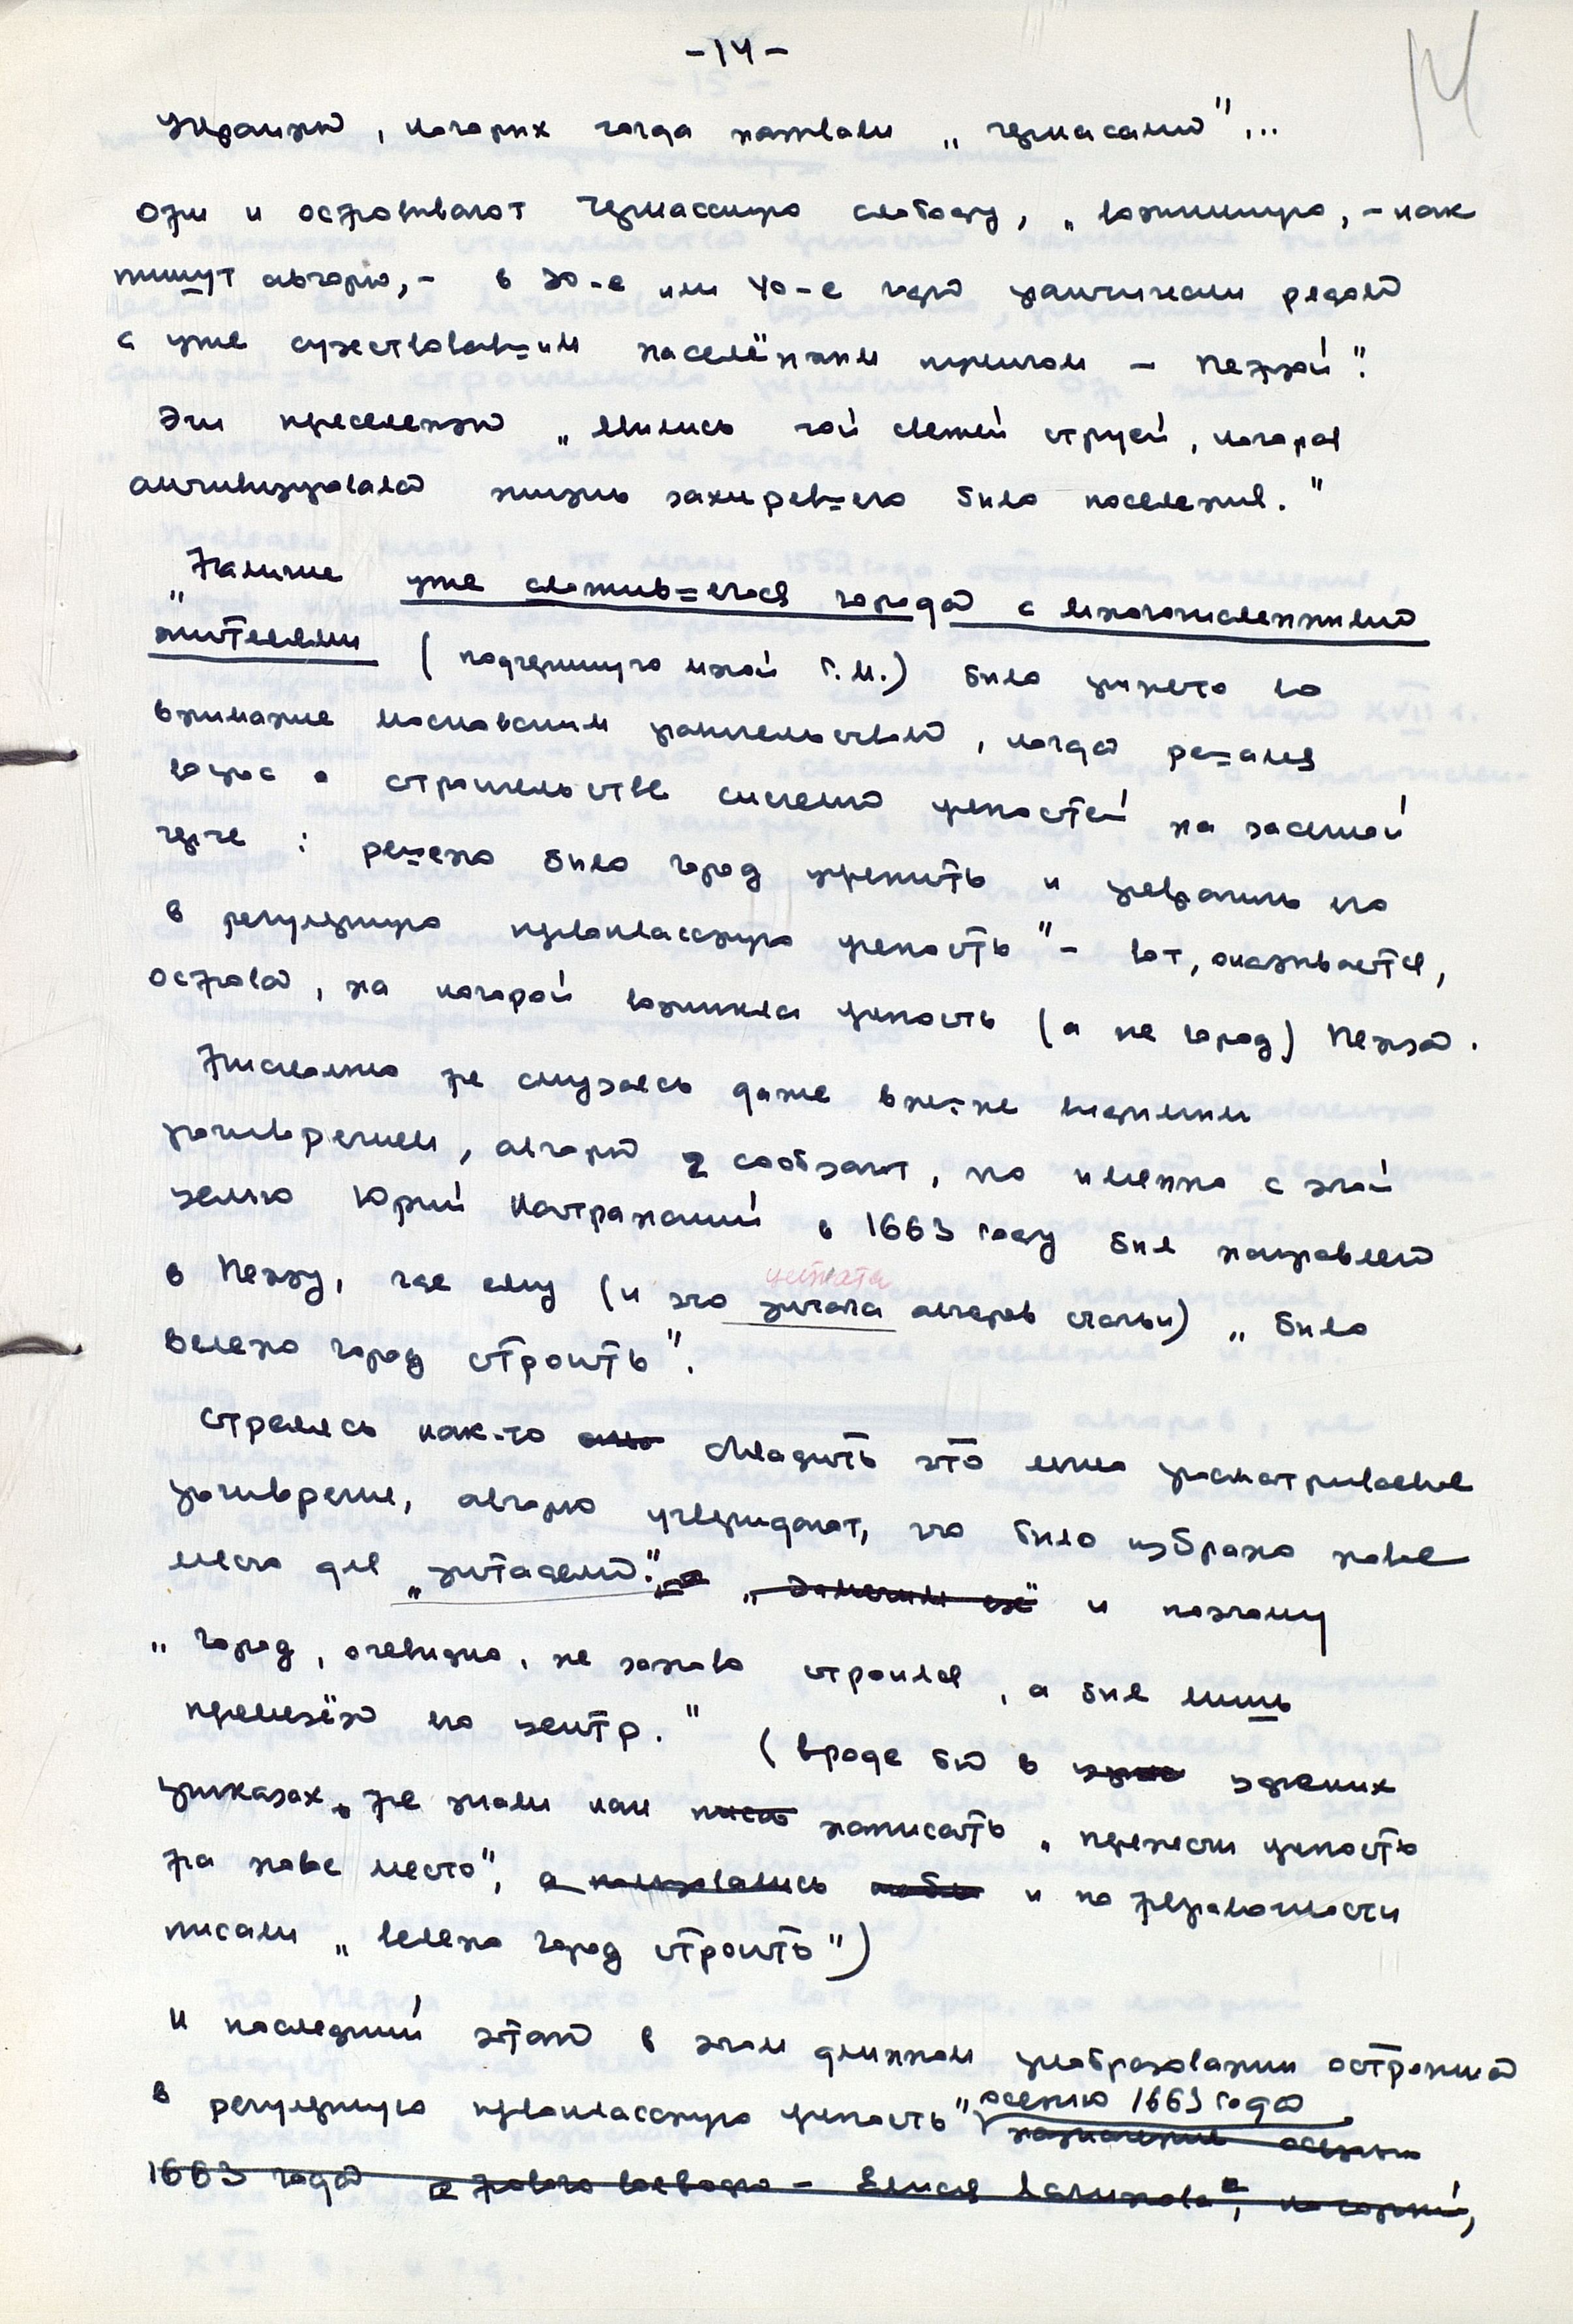 -14-
14
Украины, которых тогда называли „черкасами"...
Они и основывают Черкасскую слободу, „возникшую, - как
пишут авторы, - в 30-е или 40-е годы практически рядом
с уже существовавшим населённым пунктом - Пензой".
Эти переселенцы „явились той свежей струей, которая
активизировала жизнь захиревшего было поселения."
„Наличие уже сложившегося города с многочисленными
жителями (подчеркнуто мной Г.М.) было принято во
внимание московским правительством, когда решался
вопрос о строительстве системы крепостей на засечной
черте: решено было город укрепить и превратить его
в регулярную первоклассную крепость" - вот, оказывается,
основа, на которой возникла крепость (а не город) Пенза.
Нисколько не смущаясь даже внешне видимым
противоречием, авторы сообщают, что именно с этой
целью Юрий Котранский в 1663 году был направлен
в Пензу, где ему (и это цитата авторов статьи) „было
цитата
велено город строить".
Стремясь как-то сгладить это явно просматриваемое
противоречие, авторы утверждают, что было избрано новое
место для „цитадели". и поэтому
„город, очевидно, не заново строился, а был лишь
перенесён его центр." (вроде бы в царских
приказах не знали как написать „перенести крепость
на новое место", и по неграмотности
писали „велено город строить")
И последний этап в этом длинном преобразовании острожка
в регулярную первоклассную крепость" осенью 1663 года
назначение осенью
1663 года нового воеводы - Елисея Лачинова, который,